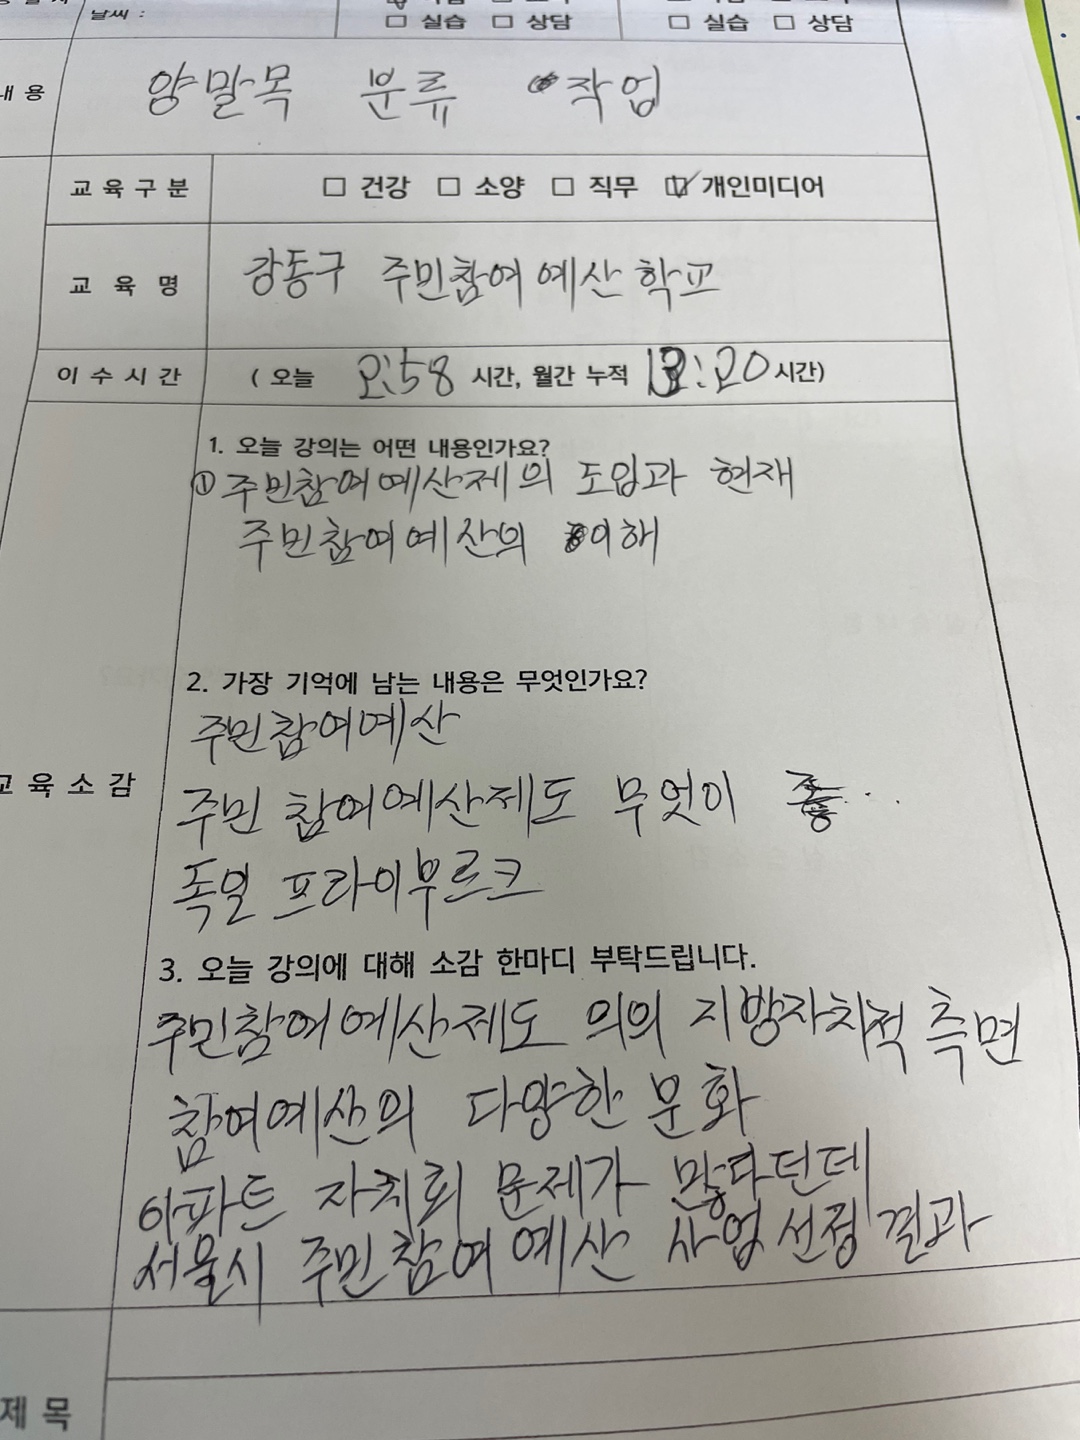 날씨 :
□ 실습 □ 상담 □ 실습 □ 상담
내용 양말목 분류 작업
교육구분 □ 건강 □ 소양 □ 직무 ☑ 개인미디어
교육명 강동구 주민참여예산학교
이수시간 ( 오늘 2:58 시간, 월간 누적 :20 시간)
1. 오늘 강의는 어떤 내용인가요?
① 주민참여예산제의 도입과 현재
주민참여예산의 이해
2. 가장 기억에 남는 내용은 무엇인가요?
주민참여예산
교육소감
주민 참여예산제도 무엇이
독일 프라이부르크
3. 오늘 강의에 대해 소감 한마디 부탁드립니다.
주민참여예산제도 의의 지방자치적 측면
참여예산의 다양한 문화
아파트 자치회 문제가 많다던데
서울시 주민참여예산 사업선정결과
제목